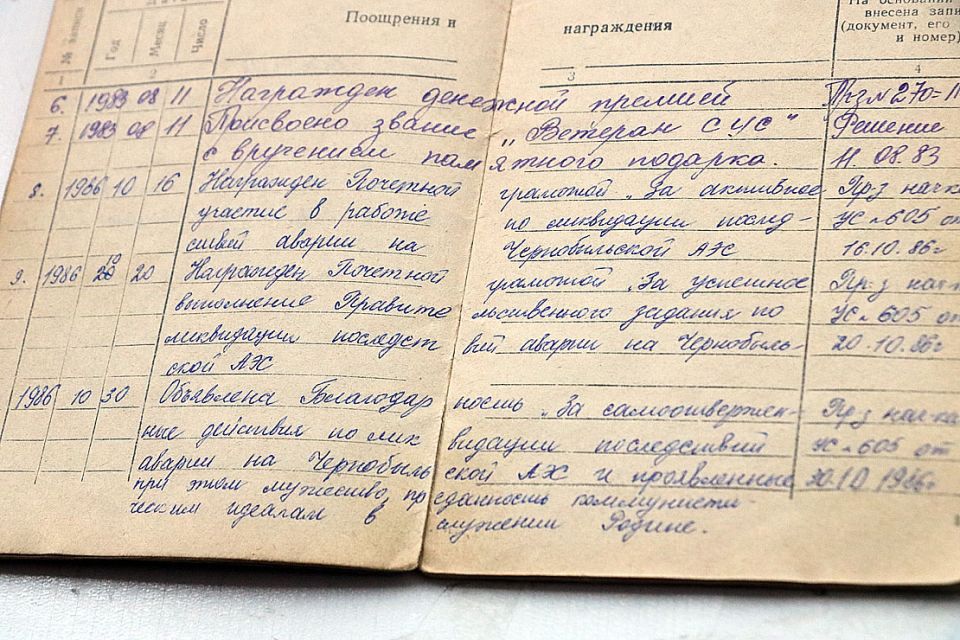 № записи Год Месяц Число Поощрения и награждения На основании внесена запи (документ, его и номер)
1 2 3 4
6. 1983 08 11 Награжден денежной премией Прз № 270-П
7. 1983 08 11 Присвоено звание „Ветеран СУС" Решение
с вручением памятного подарка. 11.08.83
8. 1986 10 16 Награжден Почетной грамотой „За активное Пр-з нач-ка
участие в работе по ликвидации послед- УС-605 от
ствий аварии на Чернобыльской АЭС 16.10.86г
9. 1986 10 20 Награжден Почетной грамотой „За успешное Пр-з нач-к
выполнение Правительственного задания по УС-605 от
ликвидации последствий аварии на Чернобыль- 20.10.86г
ской АЭС
1986 10 30 Объявлена Благодарность „За самоотвержен- Пр-з нач-ка
ные действия по ликвидации последствий УС-605 от
аварии на Чернобыльской АЭС и проявленные 30.10.1986г
при этом мужество, преданность коммунисти-
ческим идеалам в служении Родине.